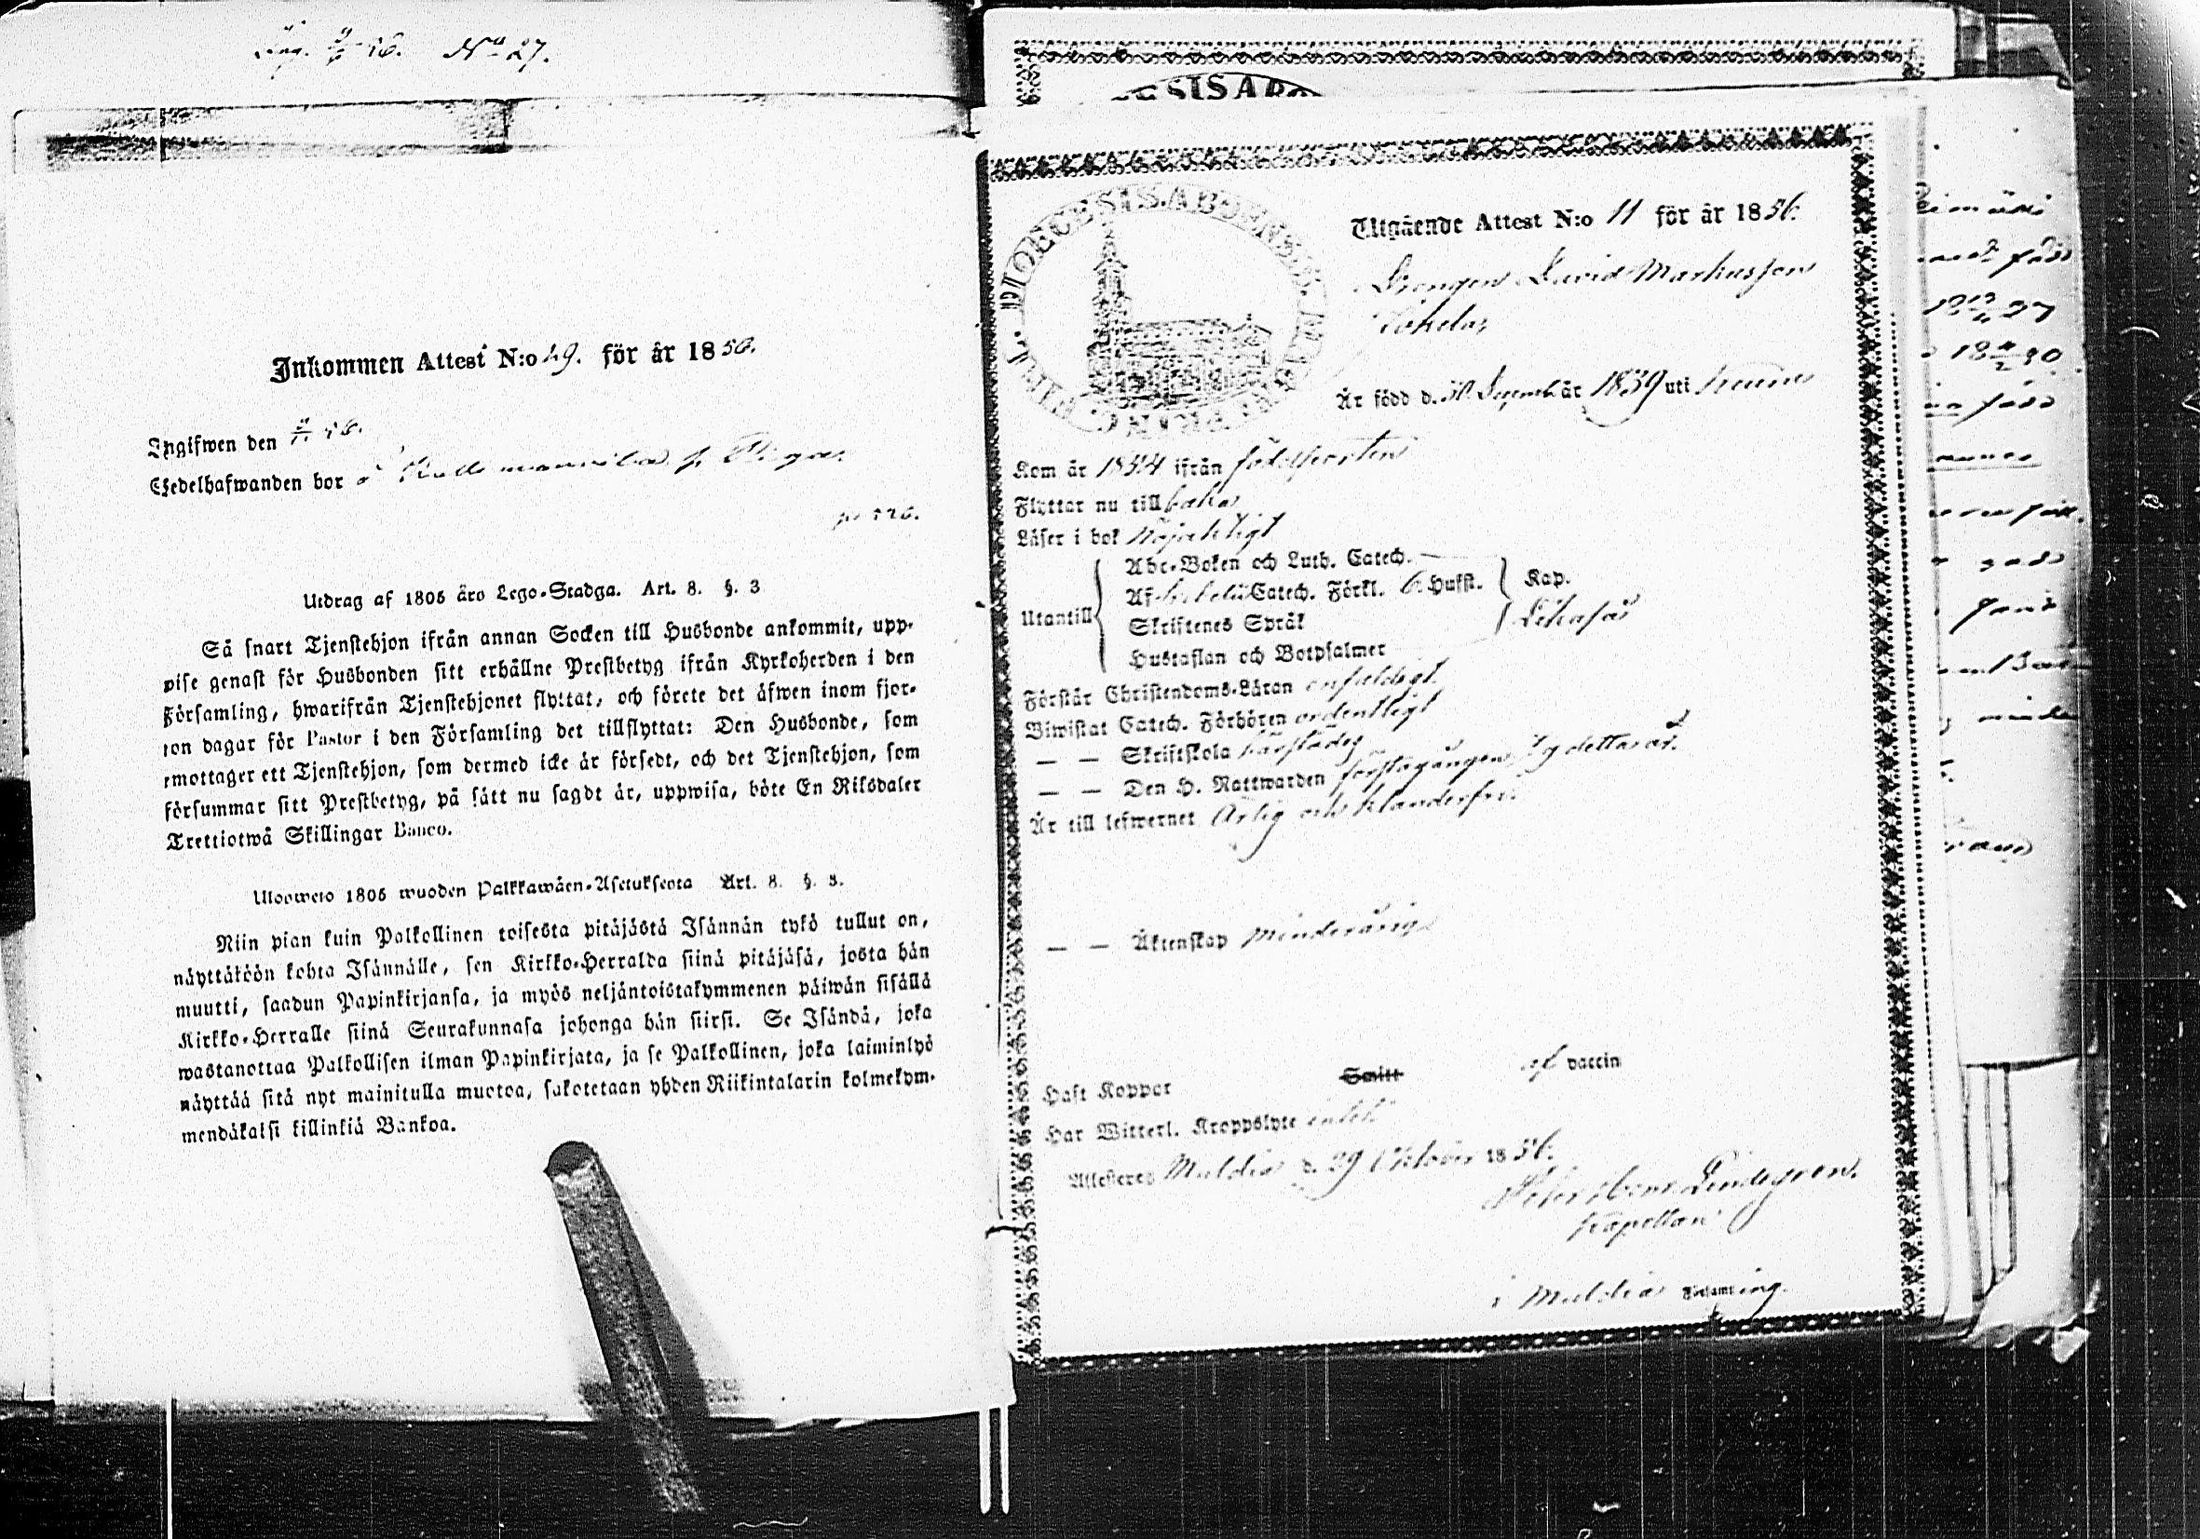 Ing. 9/11 56. No 27.
Inkommen Attest N:o 29. för år 1856.
Ingifwen den 9/11 56.
Sedelhafwanden bor å
Utdrag af 1805 års Lego-Stadga. Art. 8. §. 3
Så snart Tjenstehjon ifrån annan Socken till Husbonde ankommit, upp-
vise genast för Husbonden sitt erhållne Prestbetyg ifrån Kyrkoherden i den
Församling, hwarifrån Tjenstehjonet flyttat, och förete det äfwen inom fjor-
ton dagar för Pastor i den Församling det tillflyttat: Den Husbonde, som
emottager ett Tjenstehjon, som dermed icke är försedt, och det Tjenstehjon, som
försummar sitt Prestbetyg, på sätt nu sagdt är, uppwisa, böte En Riksdaler
Trettiotwå Skillingar Banco.
Uloswero 1805 wuoden Palkkawäen-Asetuksesta Art. 8. §. 3.
Niin pian kuin Palkollinen toisesta pitäjästä Isännän tykö tullut on,
näyttäköön kohta Isännälle, sen Kirkko-Herralda siinä pitäjäsä, josta hän
muutti, saadun Papinkirjansa, ja myös neljäntoistakymmenen päiwän sisällä
Kirkko-Herralle siinä Seurakunnasa johonga hän siirsi. Se Isändä, joka
wastanottaa Palkollisen ilman Papinkirjata, ja se Palkollinen, joka laiminlyö
näyttää sitä nyt mainitulla muotoa, sakotetaan yhden Riikintalarin kolmekym-
mendäkaksi killinkiä Bankoa.
DIOECESIS ABOENSIS
Utgående Attest N:o 11 för år 1856.
Drengen David Markusson
Är född d. 30 Decemb. år 1839 uti
Kom år 1854 ifrån födelseorten
Flyttar nu tillbaka
Läser i bok nöjaktigt
Utantill
Abc-Boken och Luth. Catech.
Af Catech. Förkl. 6 Hufst.
Skriftenes Språk
Hustaflan och Botpsalmer
Kap.
Förstår Christendoms-Läran enfaldigt
Biwistat Catech. Förhören ordentligt
— — Skriftskola härstädes
— — Den H. Nattwarden förstagången detta år.
Är till lefwernet Ärlig och klanderfri.
— — Äktenskap minderårig
Haft Koppor Smitt af vaccin
Har Witterl. Kroppslyte intet
Attesteras Muldia d. 29 Oktober 1856.
Lindegren.
Kapellan
i Muldia Församling.